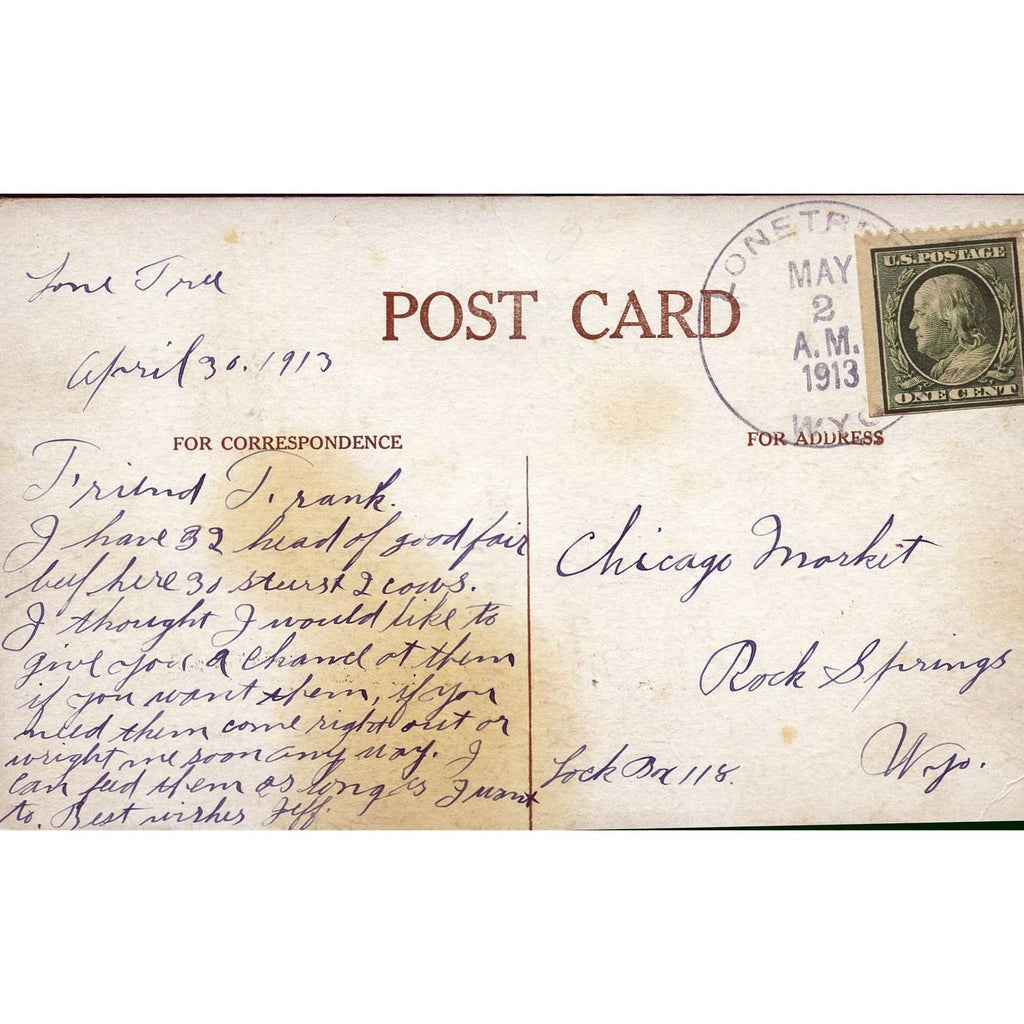 Lone Tree
April 30. 1913
POST CARD
LONETREE
MAY
2
A.M.
1913
WYO
U.S. POSTAGE
ONE CENT
FOR CORRESPONDENCE
FOR ADDRESS
Friend Frank.
I have 32 head of good fair
beef here 30 steers & 2 cows.
I thought I would like to
give you a chance at them
if you want them, if you
need them come right out or
wright me soon any way. I
can feed them as long as I want
to. Best wishes Jeff.
Chicago Market
Rock Springs
Wyo.
Lock Box 118.